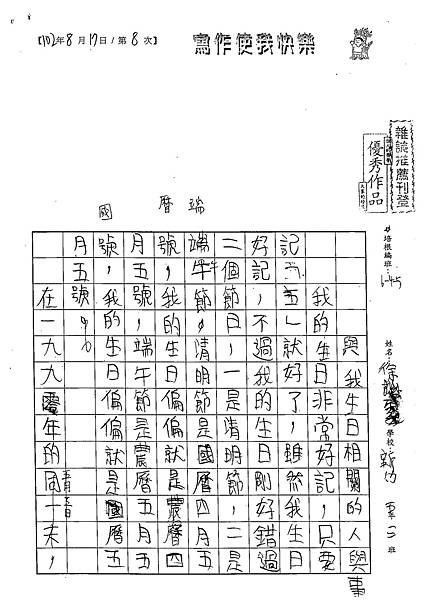 【102年8月17日/第8次】
寫作使我快樂
雜誌推薦刊登
優秀作品
培根編班:
1-45
姓名:徐
學校
班
與我生日相關的人與事
我的生日非常好記,只要
記五五就好了,雖然我生日
好記,不過我的生日剛好錯過
二個節日,一是清明節,二是
端午節。清明節是國曆四月五
號,我的生日偏偏是農曆四
月五號,端午節是農曆五月五
號,我的生日偏偏就是國曆五
月五號。
在一九九零年的同一天,
五月五日
端
曆
國